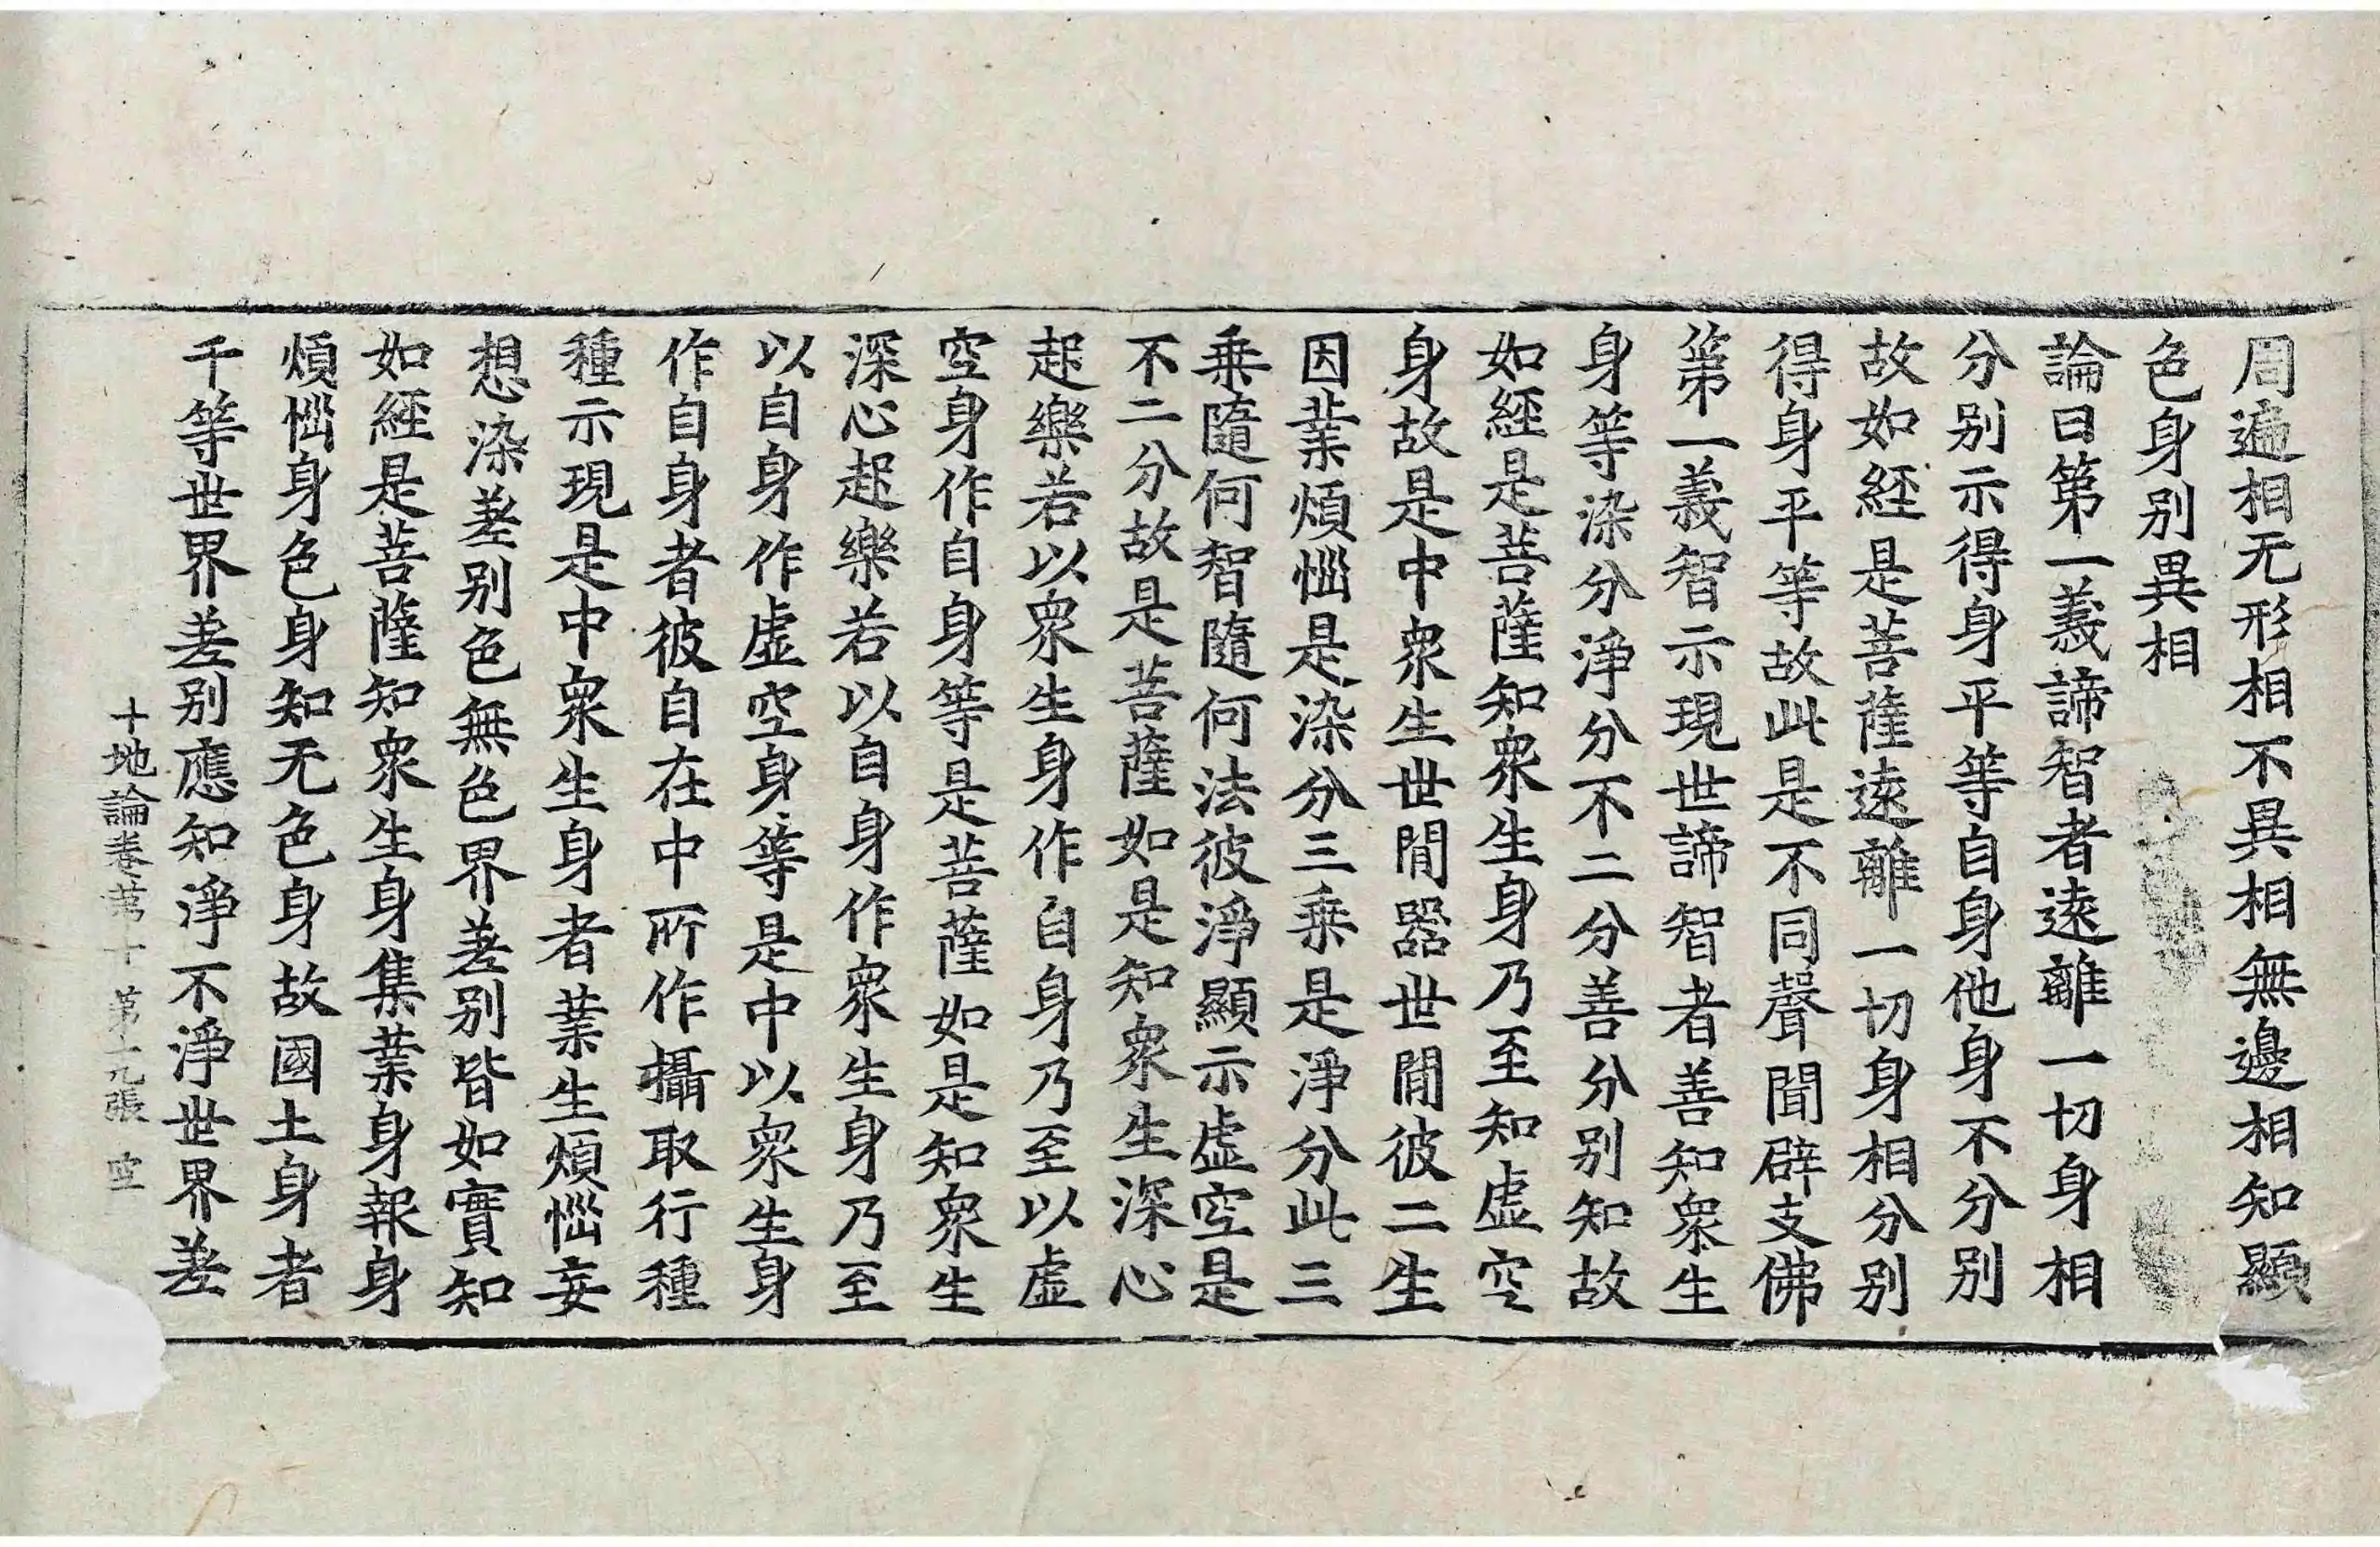 周遍相无形相不異相無邊相知顯
色身别異相
論曰第一義諦智者遠離一切身相
分别示得身平等自身他身不分别
故如經是菩薩遠離一切身相分别
得身平等故此是不同聲聞辟支佛
第一義智示現世諦智者善知衆生
身等染分淨分不二分善分别知故
如經是菩薩知衆生身乃至知虚空
身故是中衆生世間器世間彼二生
因業煩惱是染分三乗是淨分此三
乗隨何智隨何法彼淨顯示虚空是
不二分故是菩薩如是知衆生深心
起樂若以衆生身作自身乃至以虚
空身作自身等是菩薩如是知衆生
深心起樂若以自身作衆生身乃至
以自身作虚空身等是中以衆生身
作自身者彼自在中所作攝取行種
種示現是中衆生身者業生煩惱妄
想染差别色無色界差别皆如實知
如經是菩薩知衆生身集業身報身
煩惱身色身知无色身故國土身者
千等世界差别應知淨不淨世界差
十地論卷苐十 第十九張 空